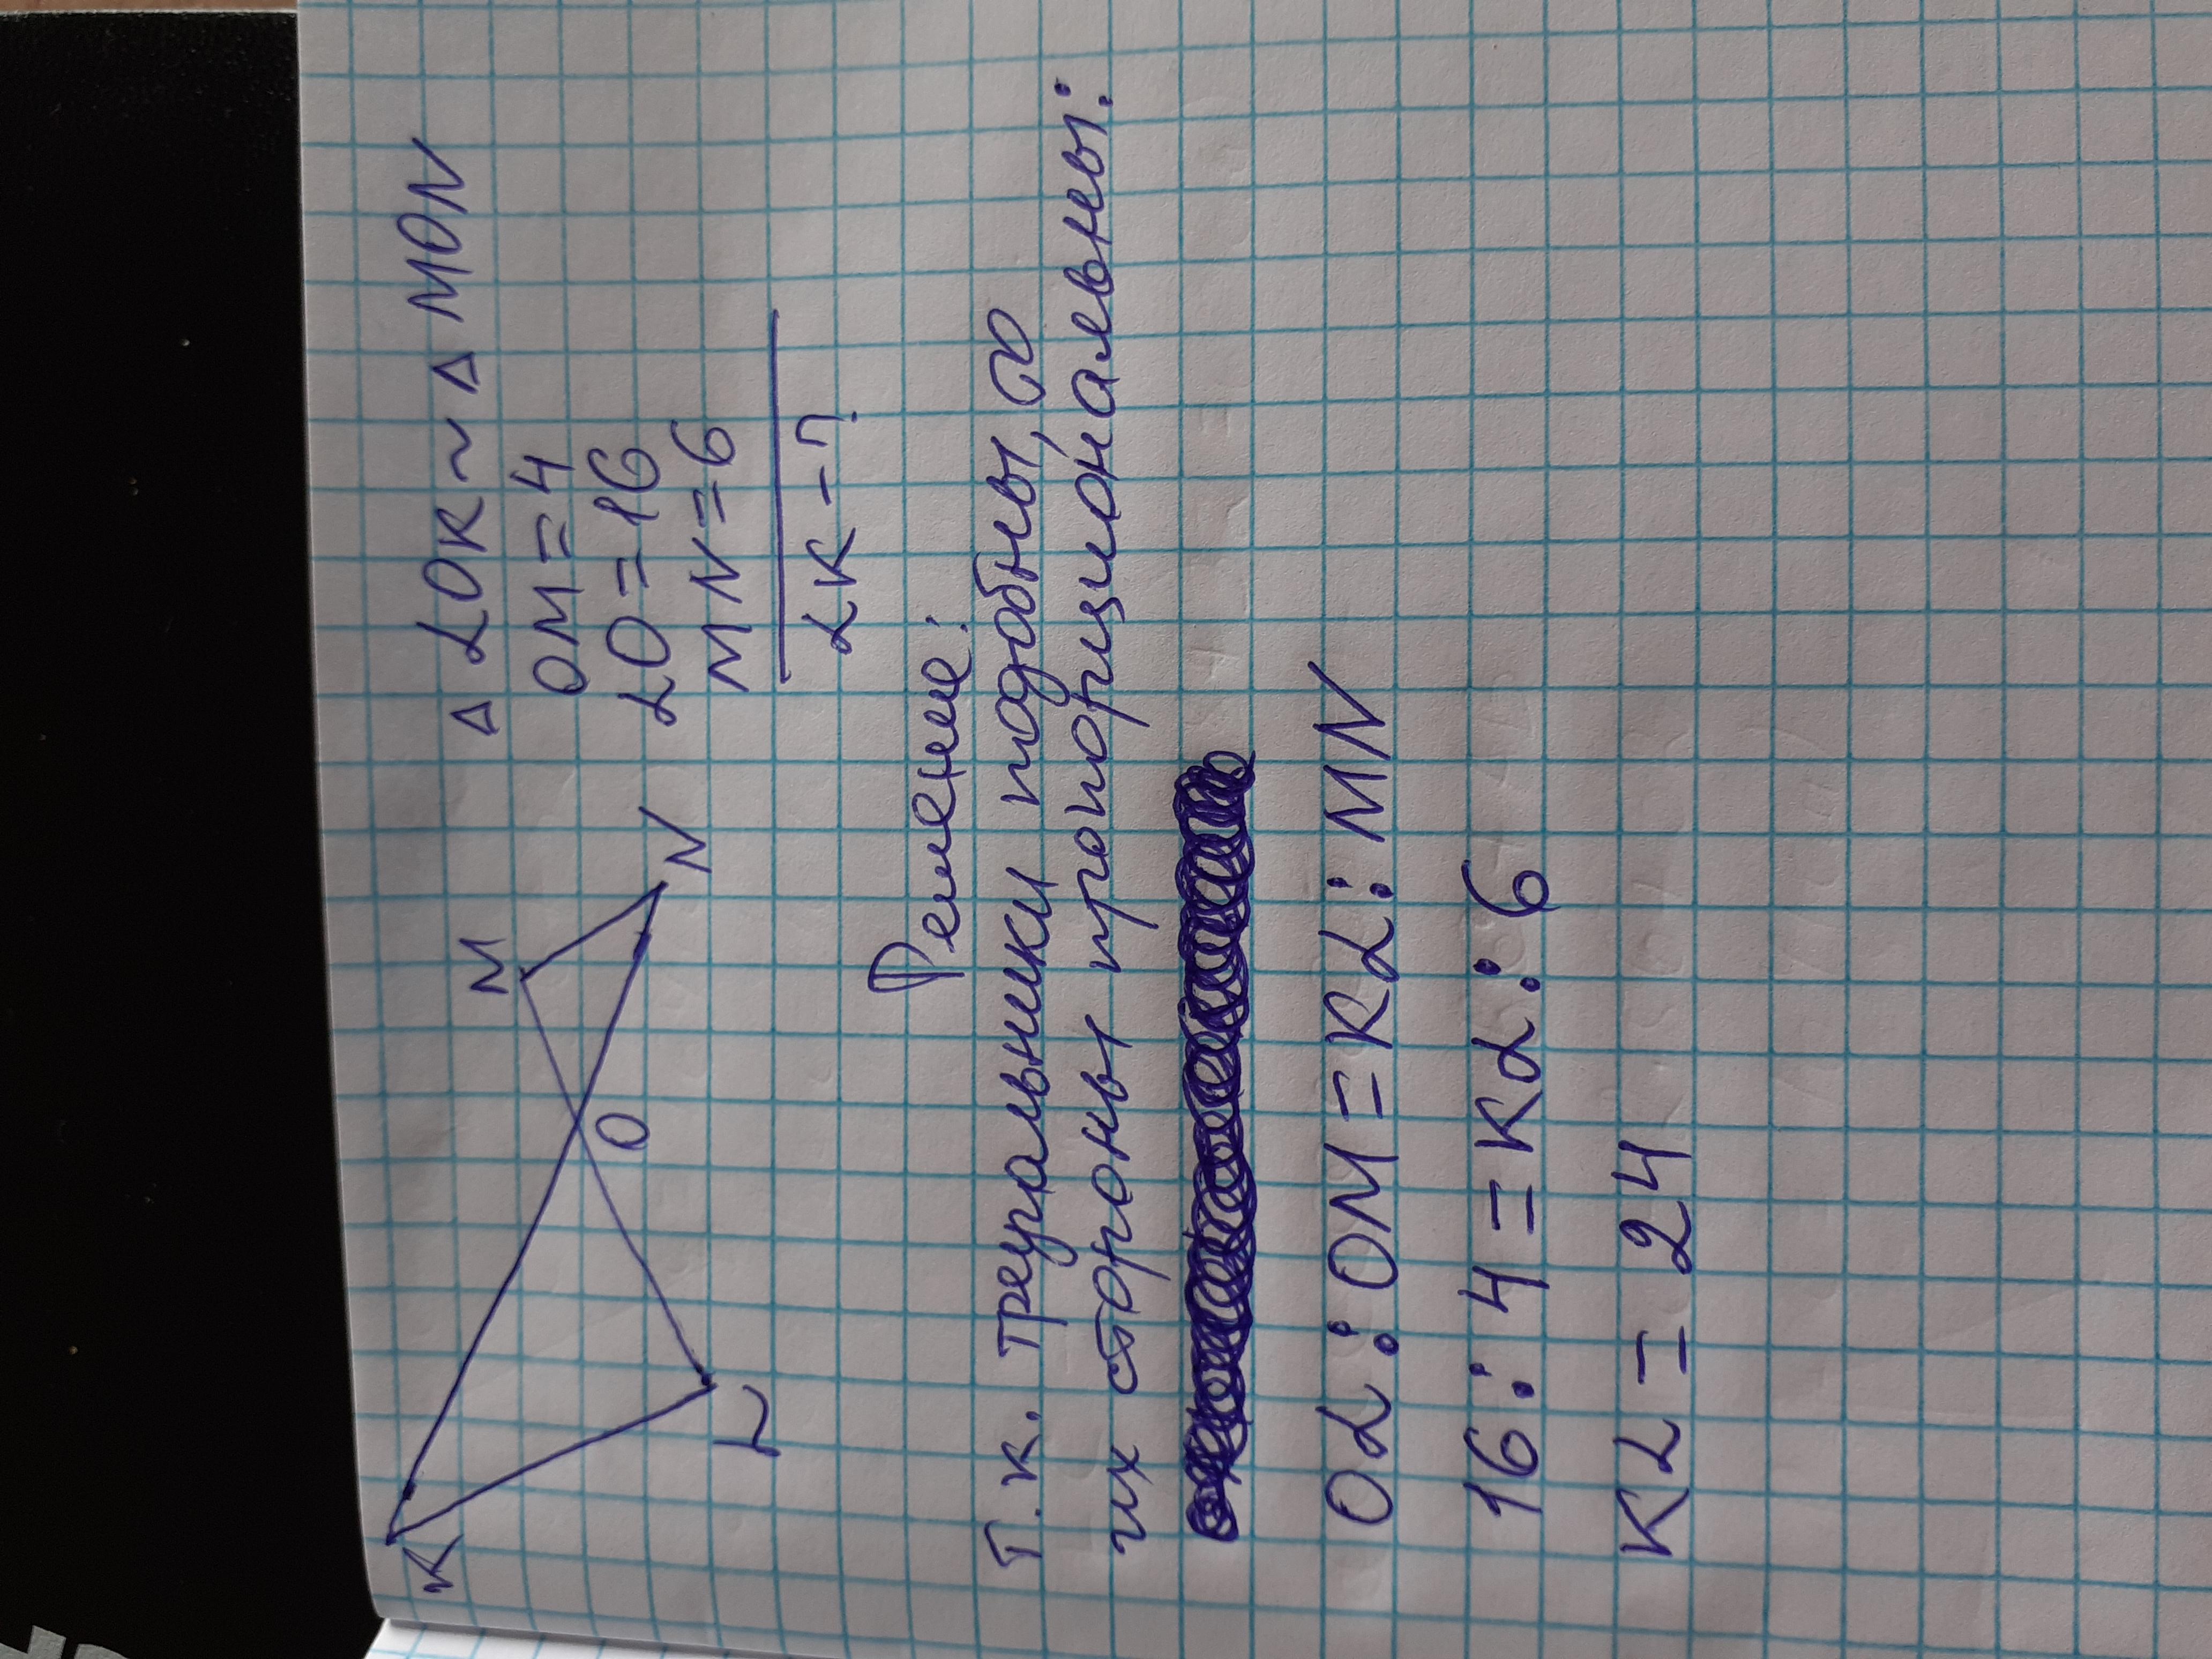 K
M
O
L
N
Δ LOK ~ Δ MON
OM = 4
LO = 16
MN = 6
LK - ?
Решение:
Т.к. треугольники подобны, то
их стороны пропорциональны:
OL : OM = KL : MN
16 : 4 = KL : 6
KL = 24